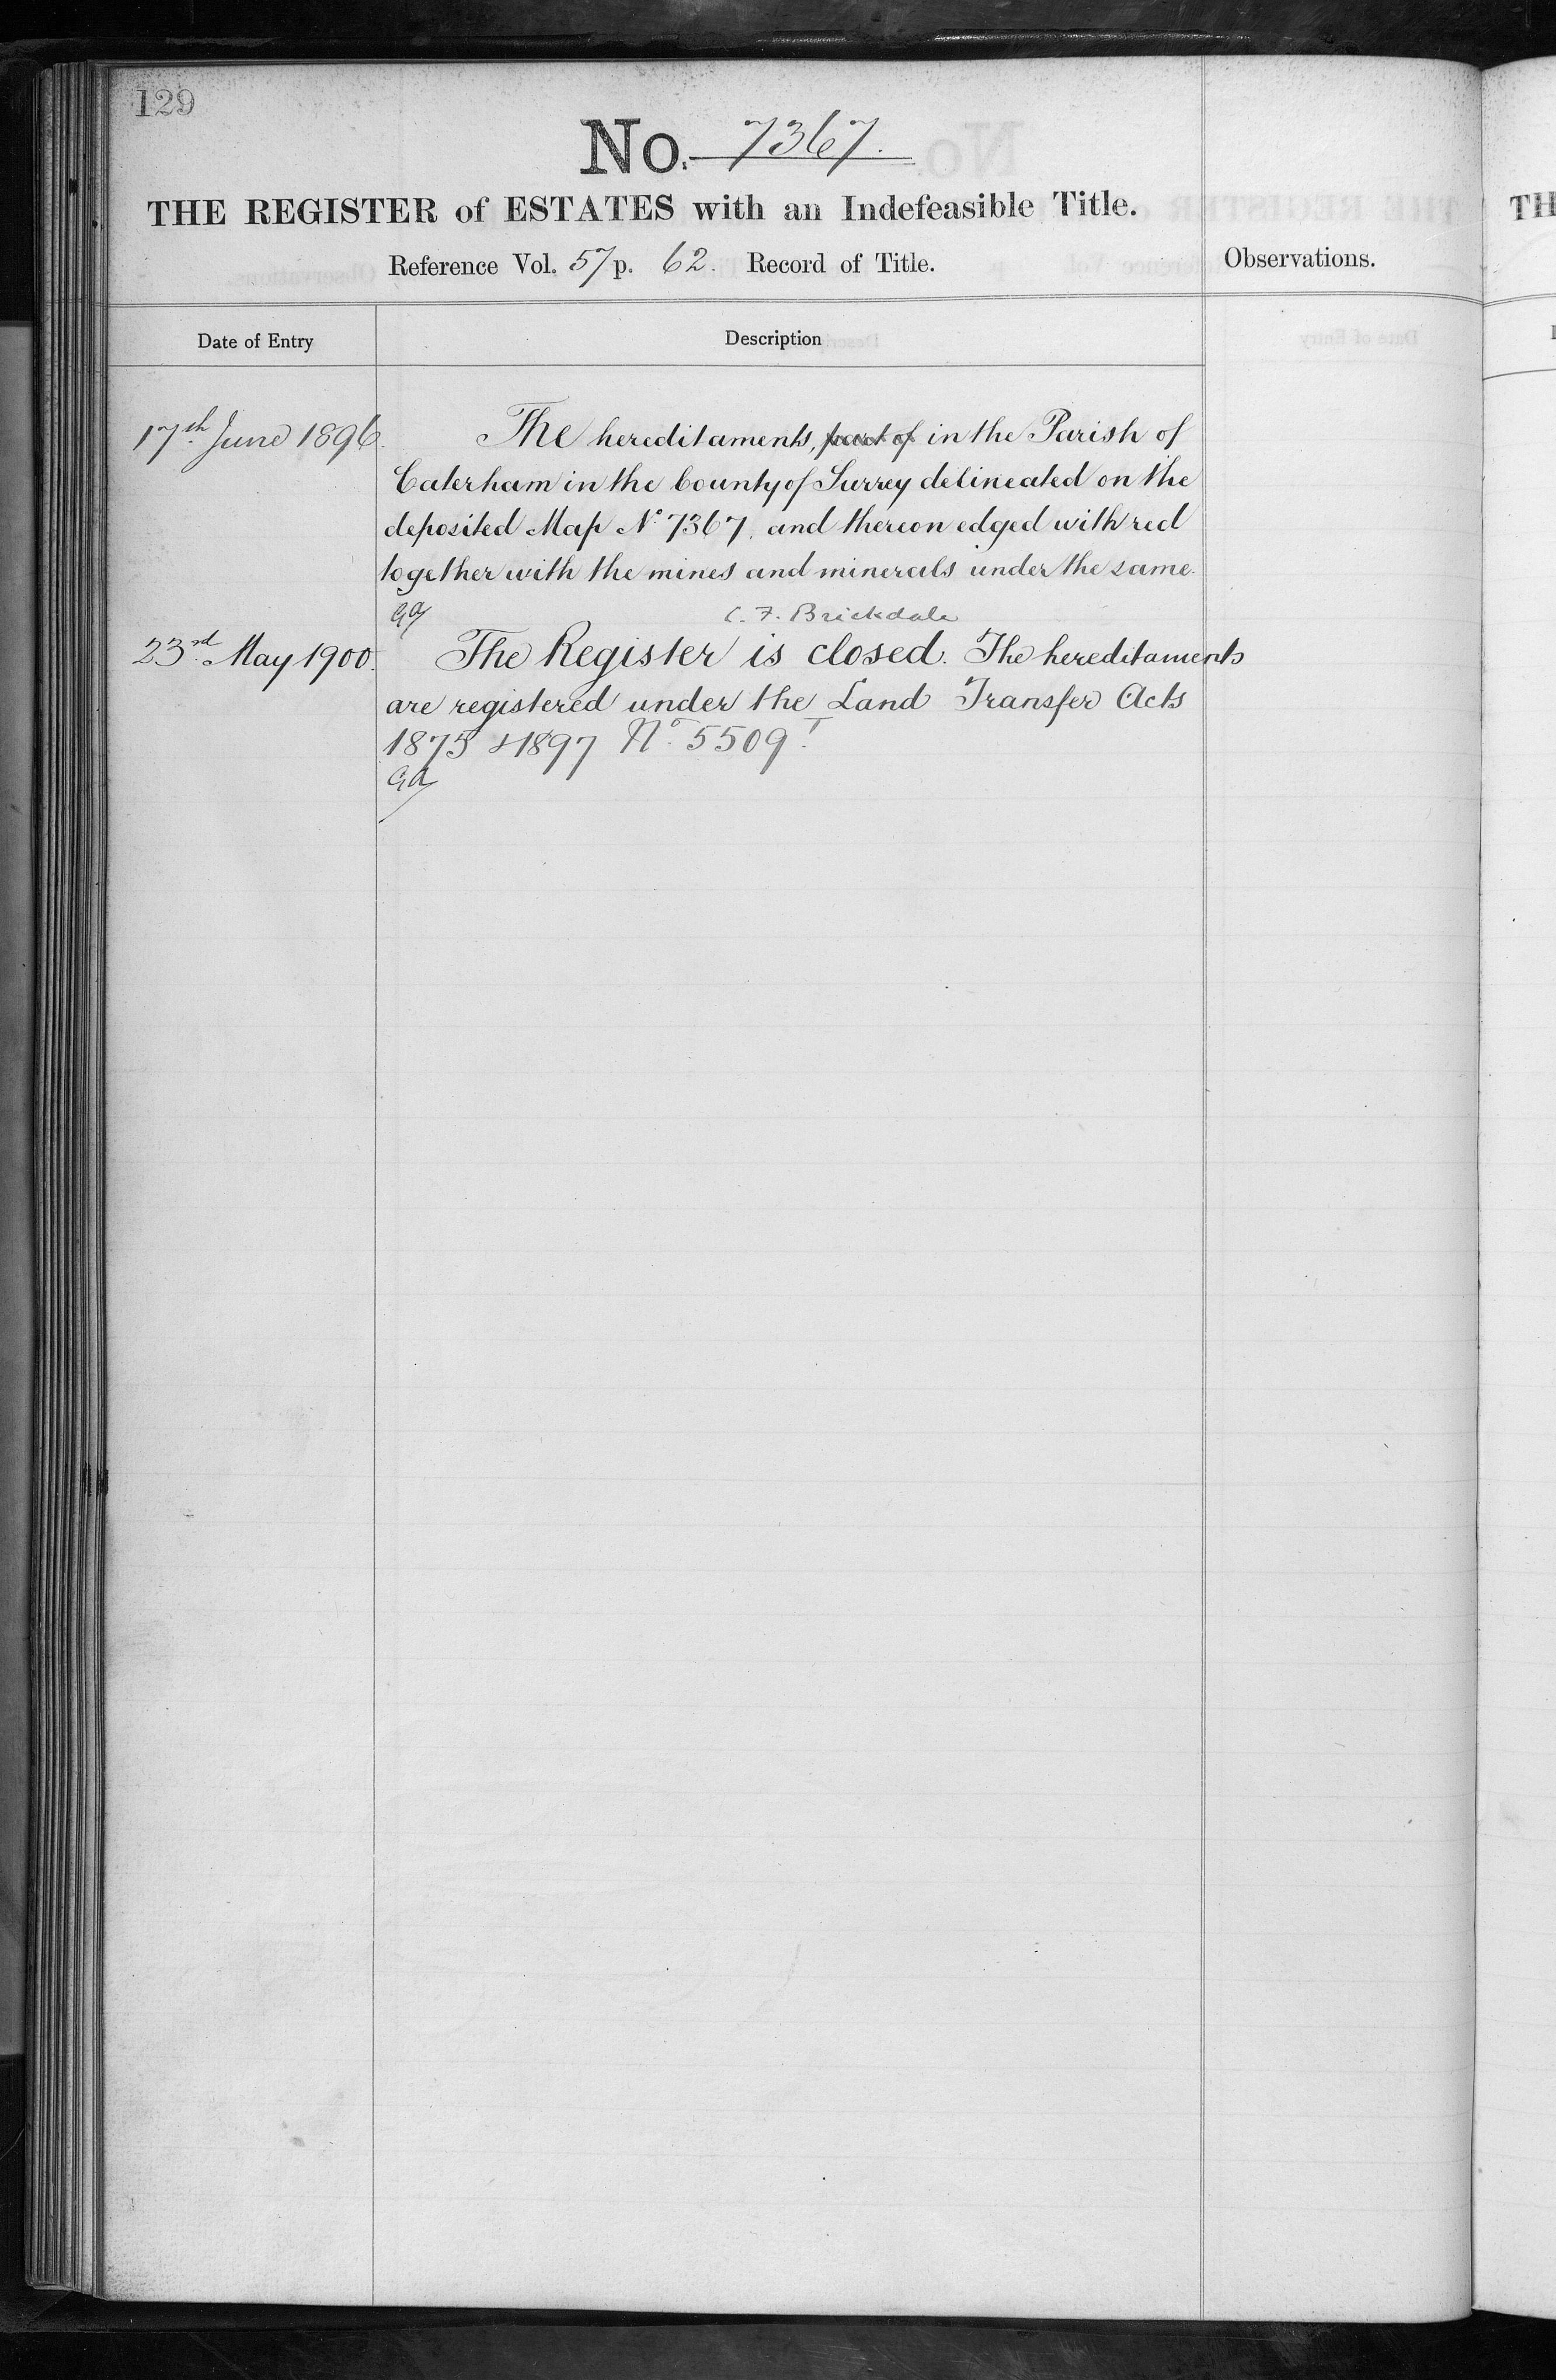 129
No. 7367.
THE REGISTER of ESTATES with an Indefeasible Title.
Reference Vol. 57 p. 62. Record of Title.
Observations.
Date of Entry
Description
17th June 1896.
The hereditaments, part of in the Parish of
Caterham in the County of Surrey delineated on the
deposited Map No 7367, and thereon edged with red
together with the mines and minerals under the same.
C. F. Brickdale
23rd May 1900.
The Register is closed. The hereditaments
are registered under the Land Transfer Acts
1875 & 1897 No. 5509 I
TH